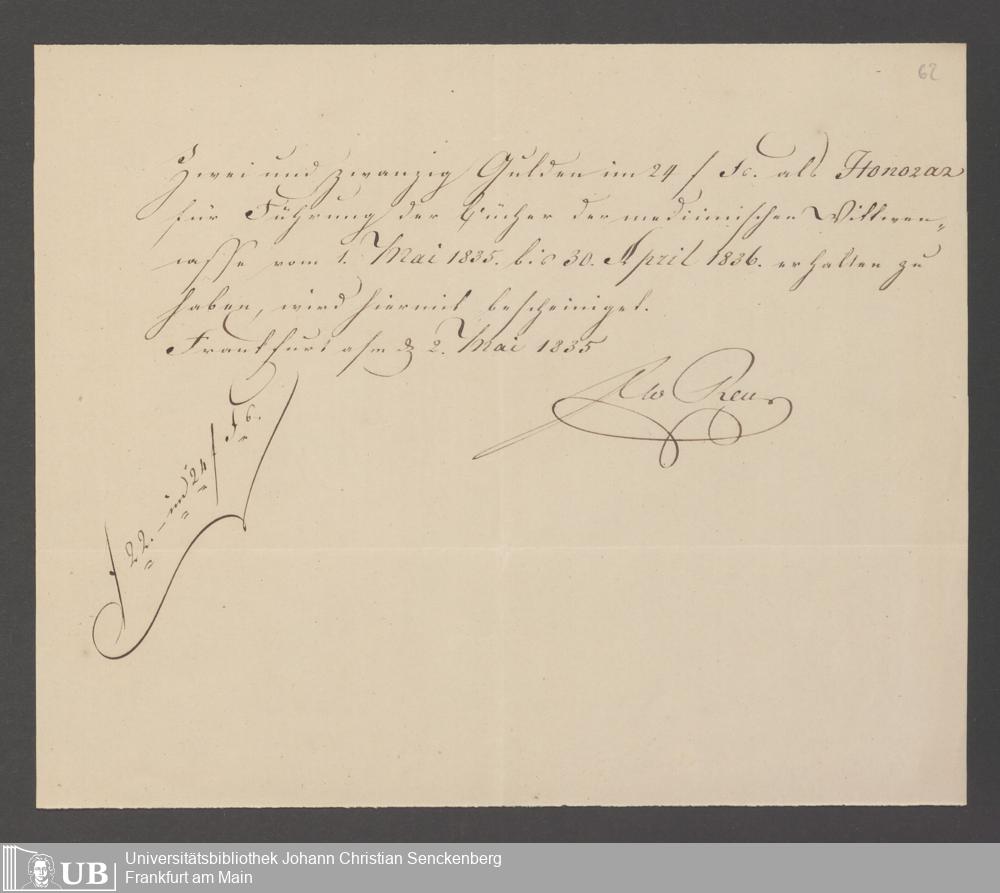 62
Zwei und zwanzig Gulden im 24 f Fs. als Honorar
für Führung der Bücher der medicinischen Wittwen-
casse vom 1. Mai 1835. bis 30. April 1836. erhalten zu
haben, wird hiermit bescheiniget.
Frankfurt a/m d 2. Mai 1835
Reu
f 22. – im 24 f Fs.
UB
Universitätsbibliothek Johann Christian Senckenberg
Frankfurt am Main